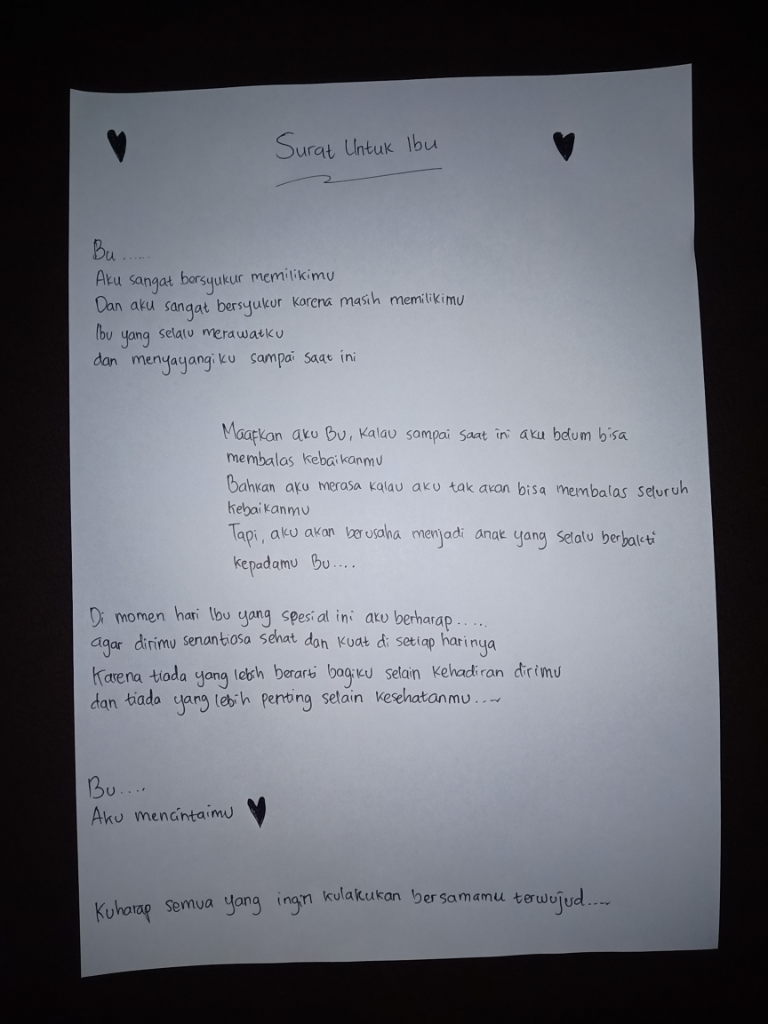 Surat Untuk Ibu
Bu......
Aku sangat bersyukur memilikimu
Dan aku sangat bersyukur karena masih memilikimu
Ibu yang selalu merawatku
dan menyayangiku sampai saat ini
Maafkan aku Bu, kalau sampai saat ini aku belum bisa
membalas kebaikanmu
Bahkan aku merasa kalau aku tak akan bisa membalas seluruh
kebaikanmu
Tapi, aku akan berusaha menjadi anak yang selalu berbakti
kepadamu Bu....
Di momen hari Ibu yang spesial ini aku berharap.....
agar dirimu senantiasa sehat dan kuat di setiap harinya
Karena tiada yang lebih berarti bagiku selain kehadiran dirimu
dan tiada yang lebih penting selain kesehatanmu....
Bu....
Aku mencintaimu
Kuharap semua yang ingin kulakukan bersamamu terwujud....